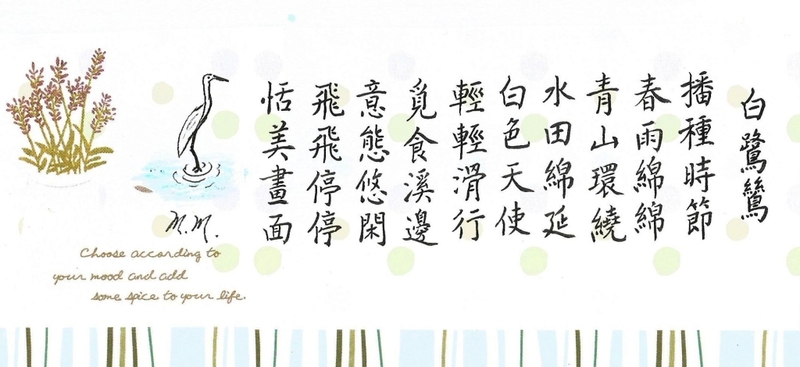 白鷺鷥
播種時節
春雨綿綿
青山環繞
水田綿延
白色天使
輕輕滑行
覓食溪邊
意態悠閑
飛飛停停
恬美畫面
M.M.
Choose according to
your mood and add
some spice to your life.